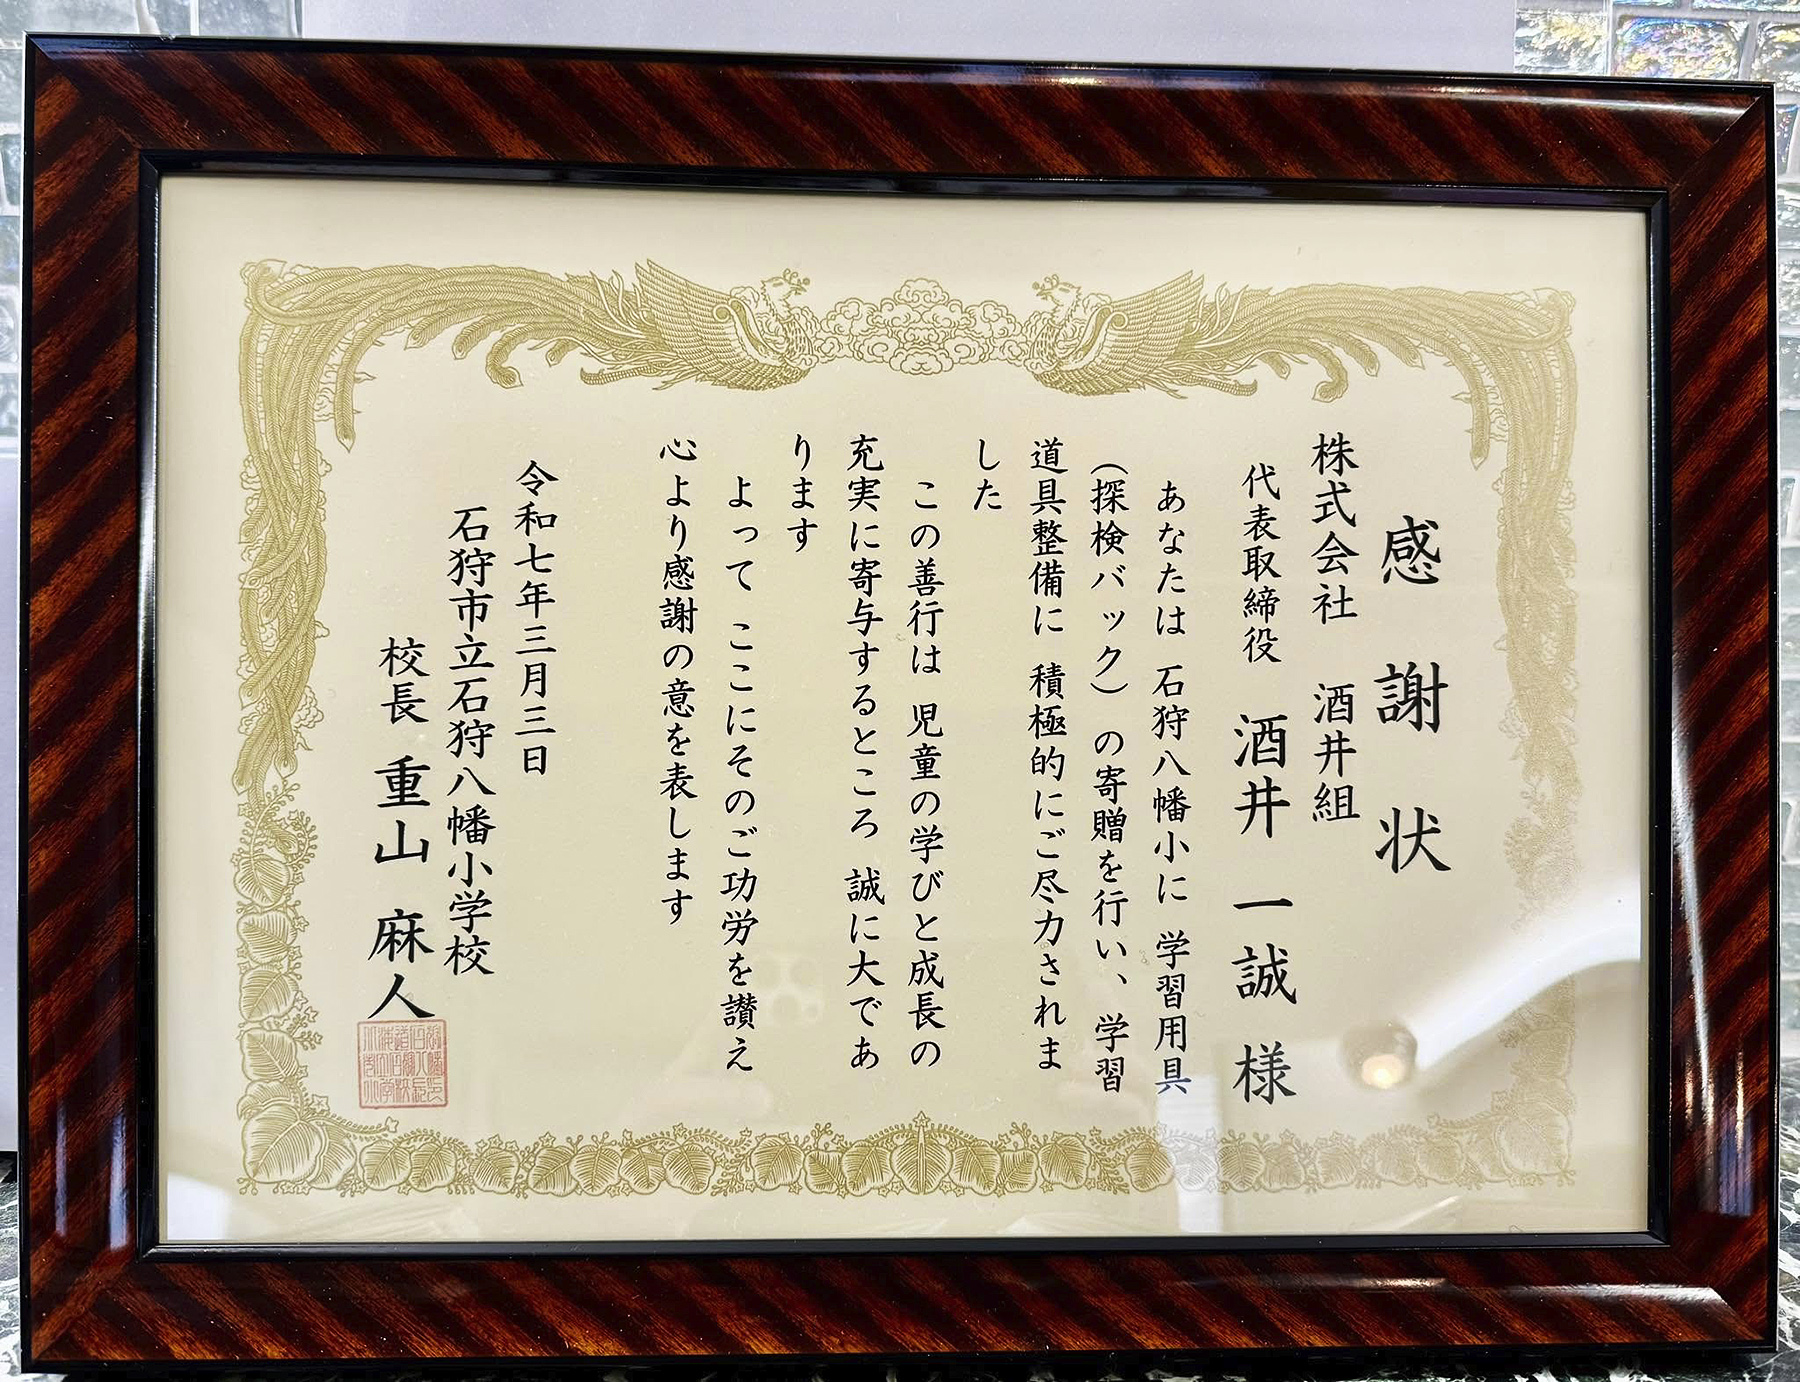 感謝状
株式会社 酒井組
代表取締役 酒井 一誠 様
あなたは 石狩八幡小に 学習用具
(探検バック)の寄贈を行い、学習
道具整備に 積極的にご尽力されま
した
この善行は 児童の学びと成長の
充実に寄与するところ 誠に大であ
ります
よって ここにそのご功労を讃え
心より感謝の意を表します
令和七年三月三日
石狩市立石狩八幡小学校
校長 重山 麻人